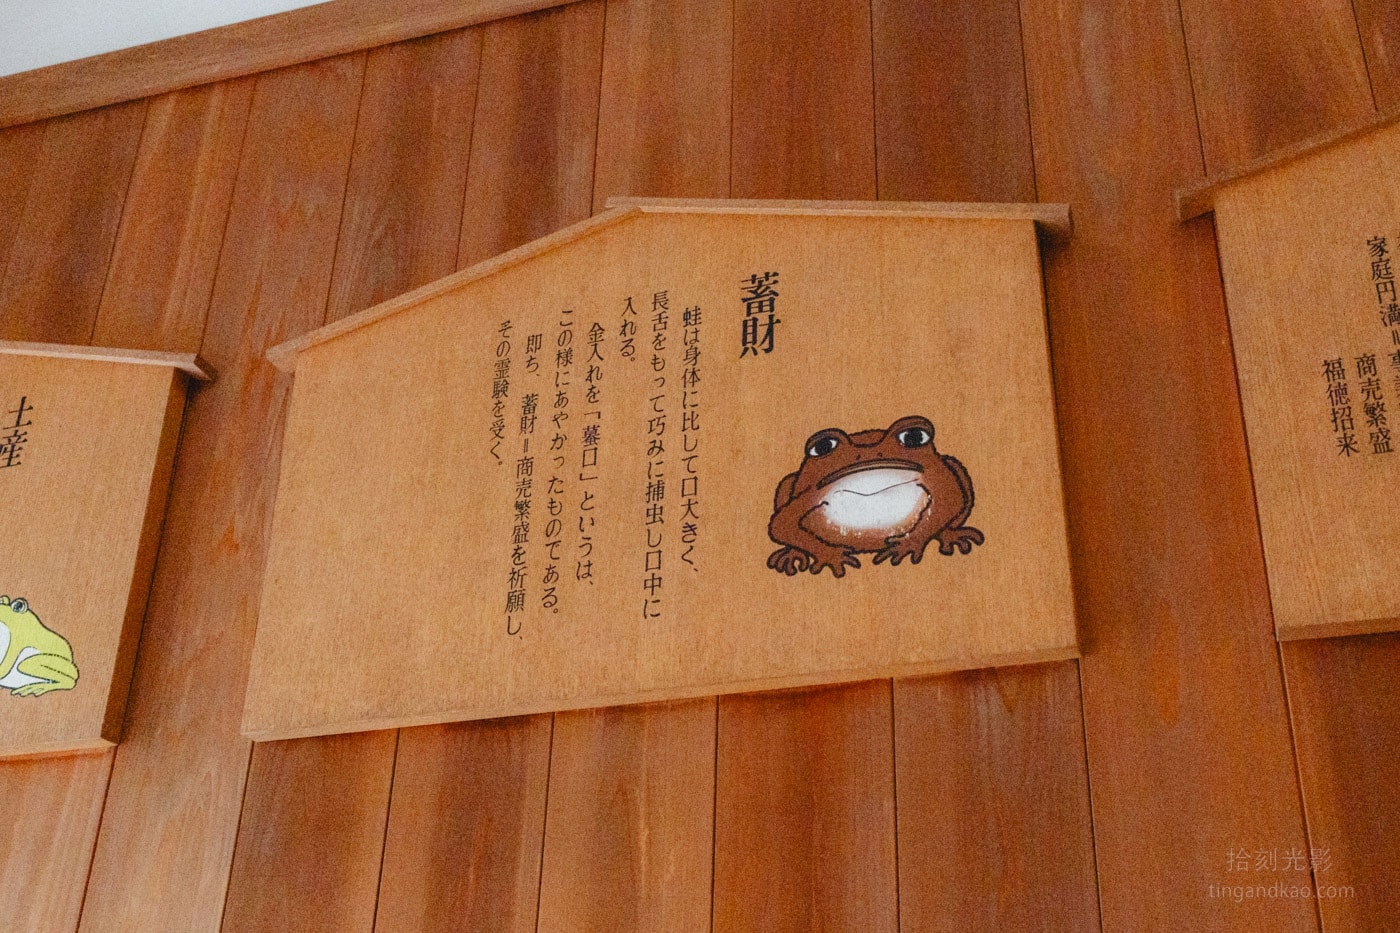 蓄財
蛙は身体に比して口大きく、
長舌をもって巧みに捕虫し口中に
入れる。
金入れを「蟇口」というは、
この様にあやかったものである。
即ち、蓄財＝商売繁盛を祈願し、
その霊験を受く。
家庭円満＝
商売繁盛
福徳招来
土産
拾刻光影
tingandkao.com